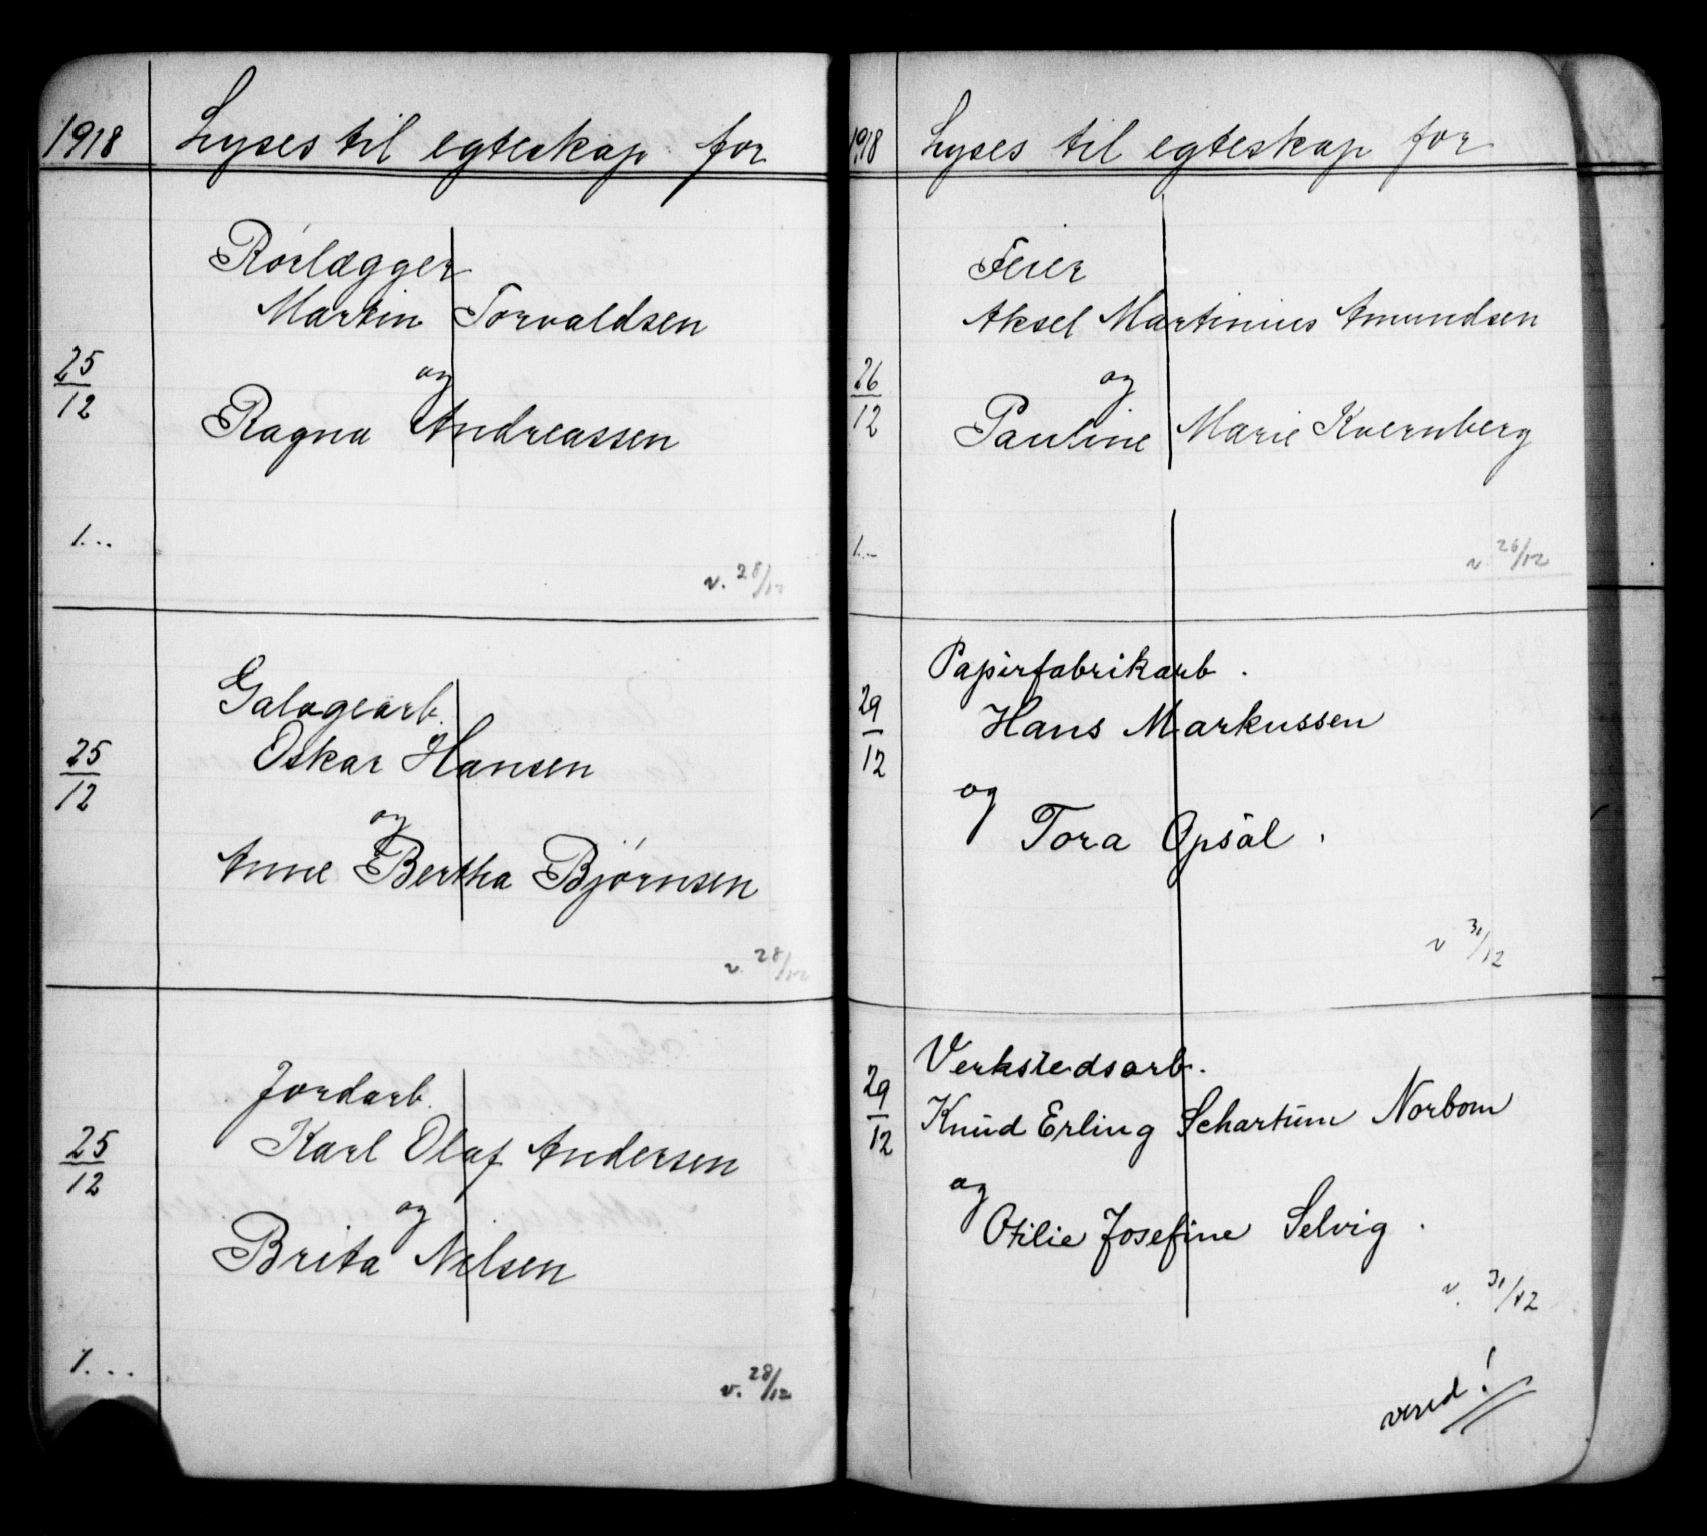 1918 Lyses til egteskap for
Rørlægger
Martin Torvaldsen
25/12
og
Ragna Andreassen
1...
v. 28/12
Galogearb.
Oskar Hansen
25/12
og
Anne Bertha Bjørnsen
v. 28/12
Jordarb.
Karl Olaf Andersen
25/12
og
Brita Nilsen
1...
v. 28/12
1918 Lyses til egteskap for
Feier
Aksel Martinius Amundsen
26/12
og
Pauline Marie Kvernberg
1...
v. 26/12
Papirfabrikarb.
29/12
Hans Markussen
og
Tora Opsal.
v 31/12
Verkstedsarb.
29/12
Knud Erling Schartum Norbom
og
Otilie Josefine Selvig.
v. 31/12